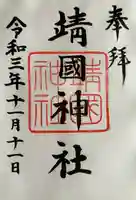 奉拝
靖國神社
令和三年十一月十一日